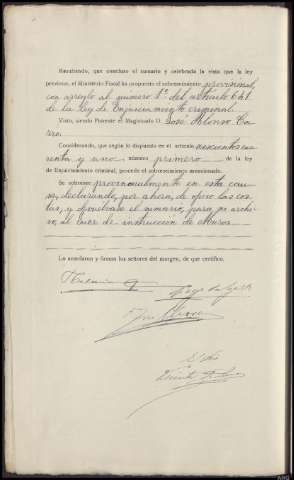 Resultando, que concluso el sumario y celebrada la vista que la ley
previene, el Ministerio Fiscal ha propuesto el sobreseimiento provisional,
con arreglo al número 1º del artículo 641
de la Ley de Enjuiciamiento criminal.
Visto, siendo Ponente el Magistrado D. José Alonso Ca-
rro.
Considerando, que según lo dispuesto en el artículo seiscientos cua-
renta y uno número primero de la ley
de Enjuiciamiento criminal, procede el sobreseimiento mencionado.
Se sobresee provisionalmente en esta cau-
sa, declarando, por ahora, de oficio las cos-
tas, y devuélvase el sumario, para su archi-
vo, al Juez de instrucción de Muros.
Lo acordaron y firman los señores del margen, de que certifico.